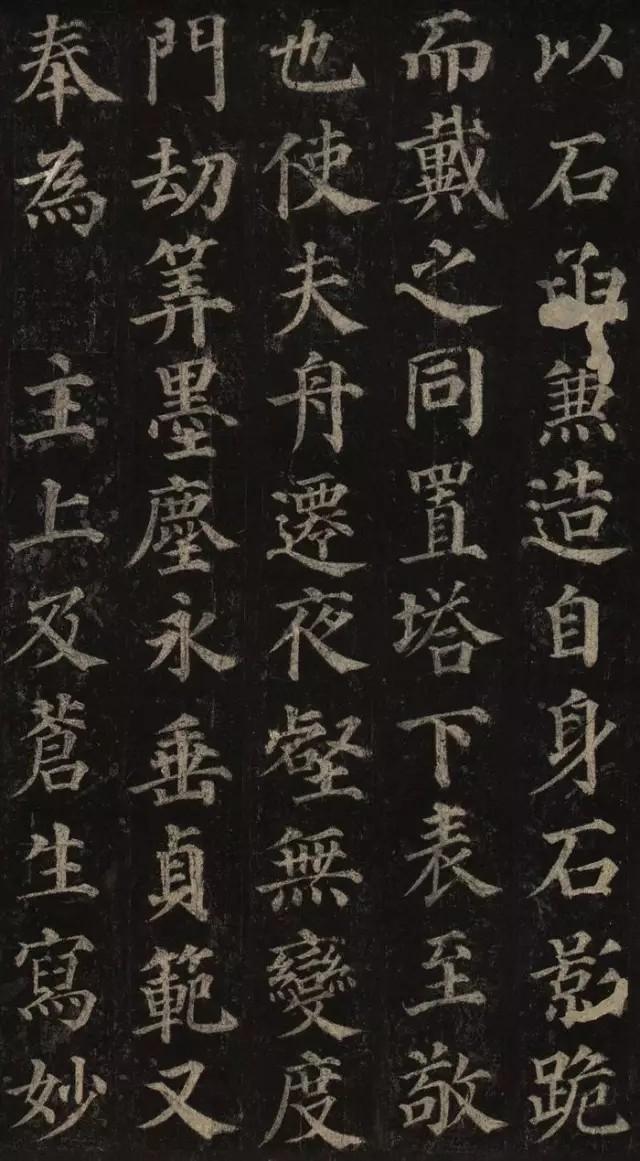 以石兼造自身石影跪
而戴之同置塔下表至敬
也使夫舟遷夜壑無變度
門劫筭墨塵永垂貞範又
奉為 主上及蒼生寫妙